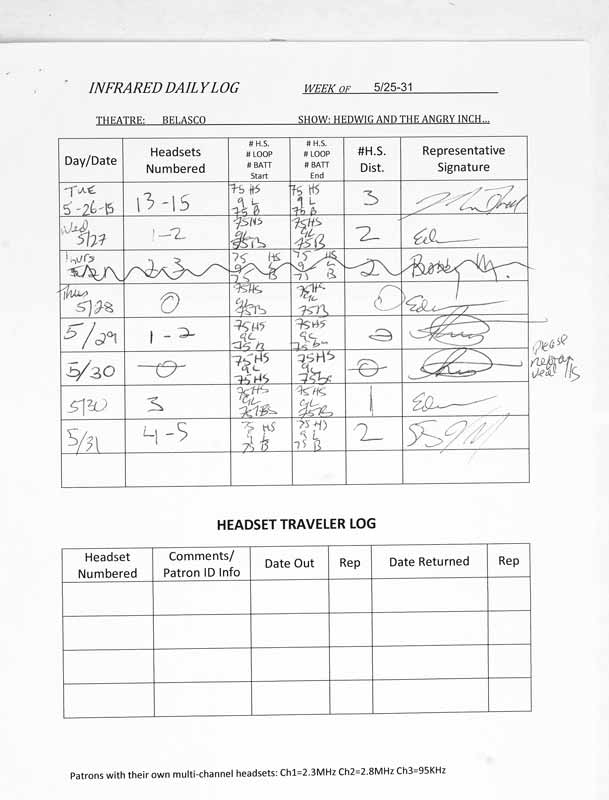 INFRARED DAILY LOG WEEK OF 5/25-31
THEATRE: BELASCO SHOW: HEDWIG AND THE ANGRY INCH...
Day/Date Headsets Numbered # H.S. # LOOP # BATT Start # H.S. # LOOP # BATT End #H.S. Dist. Representative Signature
TUE 5-26-15 13-15 75 HS 9 L 75 B 75 HS 9 L 75 B 3
Wed 5/27 1-2 75HS 9L 75B 75HS 9L 75B 2 Ed
Thurs 2-3 75 HS 9 L 75 B 75 HS 9 L 75 B 2 Bobby M.
Thus 5/28 0 75HS 9L 75B 75HS 9L 75B 0 Ed
5/29 1-2 75HS 9L 75B 75HS 9L 2
5/30 0 75HS 9L 75B 75HS 9L 0
please
5/30 3 75HS 9L 75HS 9L 75B 1 Ed
5/31 4-5 75 HS 9 L 75 B 75 HS 9 L 75 B 2
HEADSET TRAVELER LOG
Headset Numbered Comments/ Patron ID Info Date Out Rep Date Returned Rep
Patrons with their own multi-channel headsets: Ch1=2.3MHz Ch2=2.8MHz Ch3=95KHz